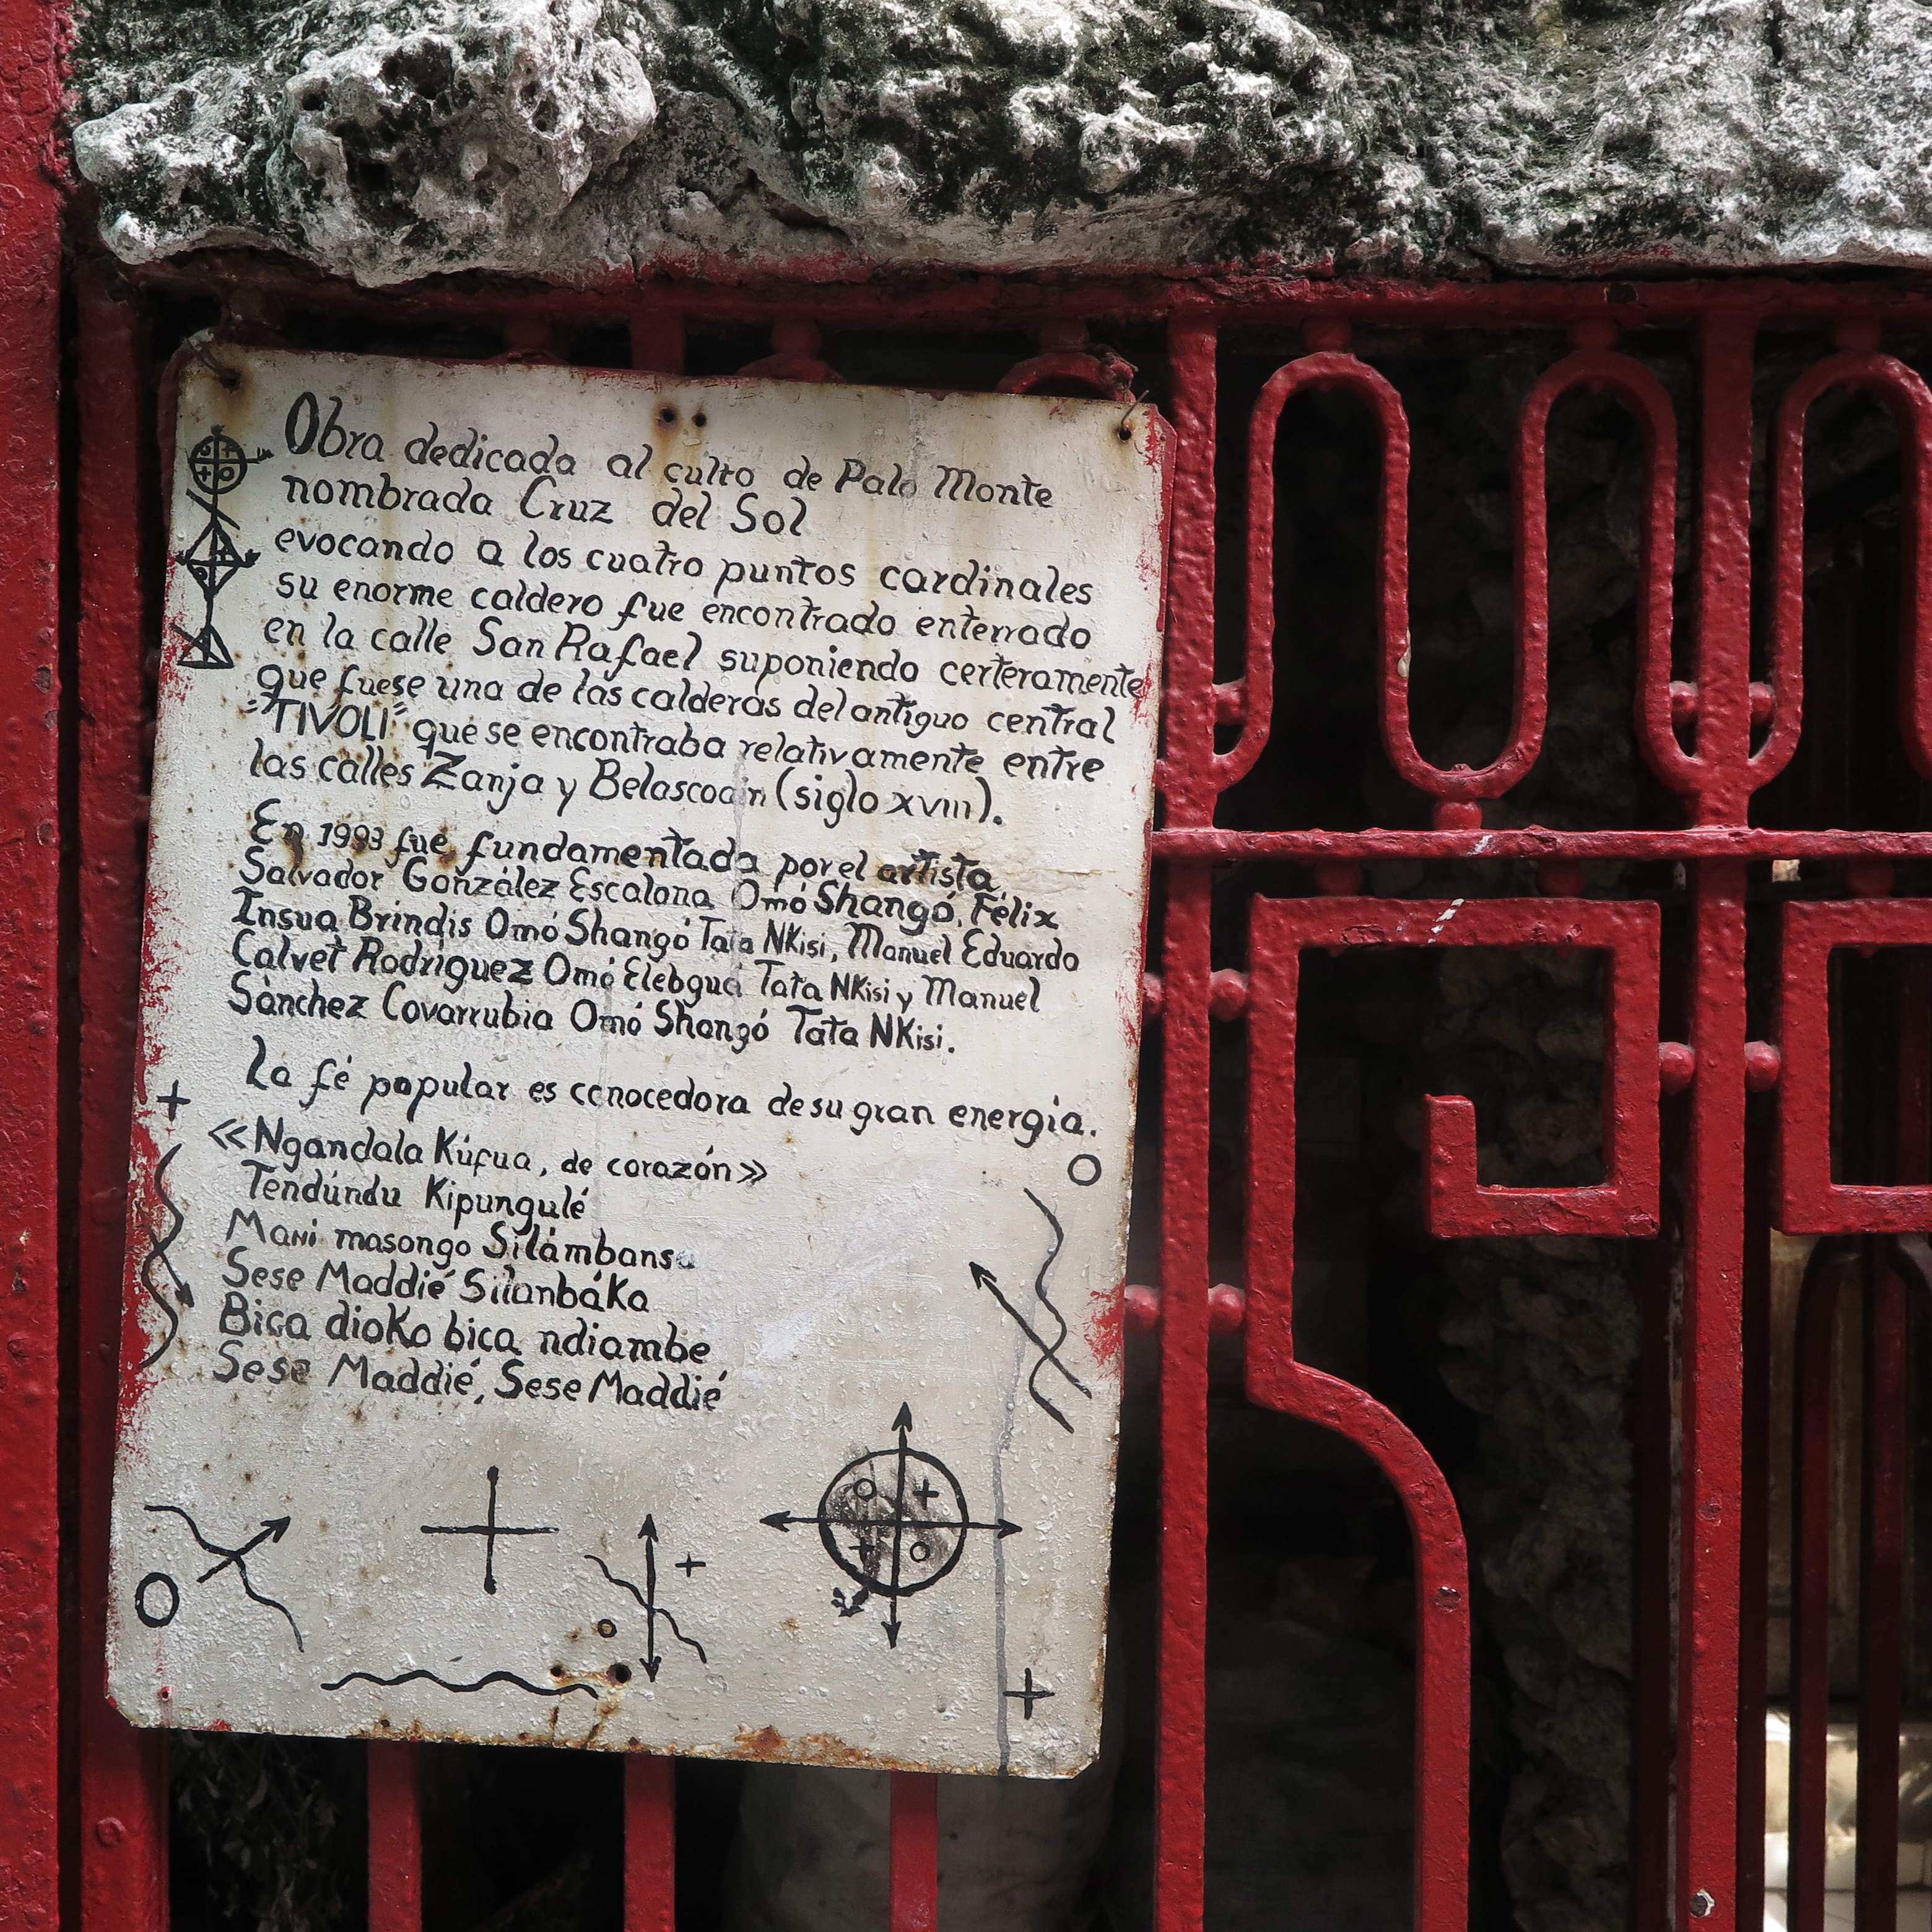 Obra dedicada al culto de Palo Monte
nombrada Cruz del Sol
evocando a los cuatro puntos cardinales
su enorme caldero fue encontrado enterrado
en la calle San Rafael suponiendo certeramente
que fuese una de las calderas del antiguo central
"TIVOLI" que se encontraba relativamente entre
las calles Zanja y Belascoain (siglo XVIII).
En 1993 fue fundamentada por el artista
Salvador González Escalona Omó Shangó, Félix
Insua Brindis Omó Shangó Tata NKisi, Manuel Eduardo
Calvet Rodríguez Omó Elebguá Tata NKisi y Manuel
Sánchez Covarrubia Omó Shangó Tata NKisi.
La fé popular es conocedora de su gran energía.
«Ngandala Kúfua, de corazón»
Tendúndu Kipungulé
Mani masongo Silámbansa
Sese Maddié Silanbáka
Bica dioko bica ndiambe
Sese Maddié, Sese Maddié